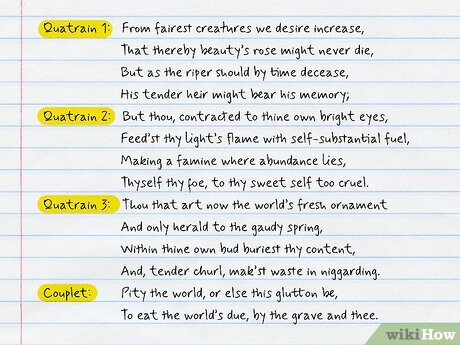 Quatrain 1: From fairest creatures we desire increase,
That thereby beauty's rose might never die,
But as the riper should by time decease,
His tender heir might bear his memory;
Quatrain 2: But thou, contracted to thine own bright eyes,
Feed'st thy light's flame with self-substantial fuel,
Making a famine where abundance lies,
Thyself thy foe, to thy sweet self too cruel.
Quatrain 3: Thou that art now the world's fresh ornament
And only herald to the gaudy spring,
Within thine own bud buriest thy content,
And, tender churl, mak'st waste in niggarding.
Couplet: Pity the world, or else this glutton be,
To eat the world's due, by the grave and thee.
wikiHow